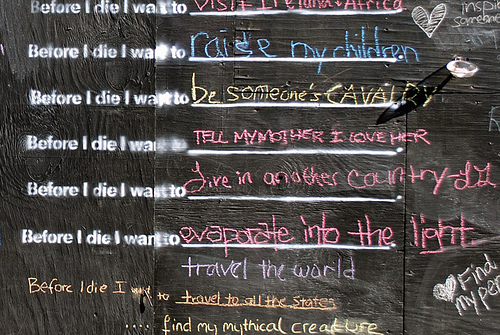 Before I die I want to VISIT IRELAND & AFRICA
inspire
Before I die I want to raise my children
Before I die I want to be SOMEONE'S CAVALRY
Before I die I want to TELL MY MOTHER I LOVE HER
Before I die I want to Live in another country-
Before I die I want to evaporate into the light
travel the world
Before I die I want to travel to all the states
Find
my
.... find my mythical creature